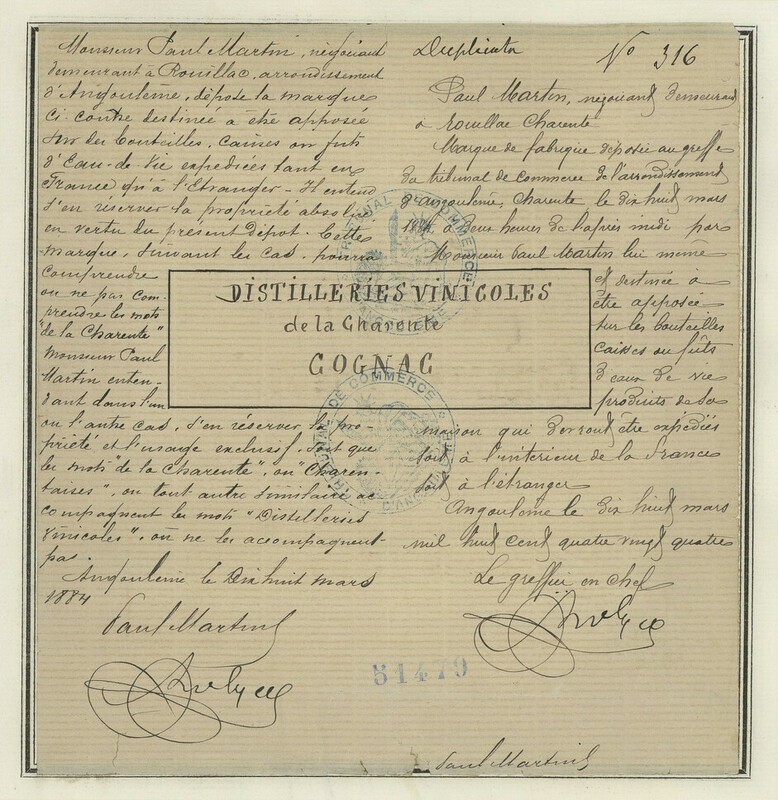 Monsieur Paul Martin, négociant
demeurant à Rouillac, arrondissement
d'Angoulême, dépose la marque
ci-contre destinée a été apposée
sur des bouteilles, caisses ou futs
d'Eau-de-vie expediées tant en
France qu'à l'Etranger - Il entend
s'en réserver la propriété absolue
en vertu du présent dépôt. Cette
marque, suivant les cas, pourra
comprendre
ou ne pas com-
prendre les mots
"de la Charente"
Monsieur Paul
Martin enten-
dant dans l'un
ou l'autre cas, s'en réserver la pro-
priété et l'usage exclusif, soit que
les mots "de la Charente", ou "Charen-
taises", ou tout autre similaire ac-
compagnent les mots "Distilleries
Vinicoles", ou ne les accompagnent
pas.
Angoulême le Dix huit mars
1884
Paul Martin
Duplicata N° 316
Paul Martin, négociant demeurant
à Rouillac Charente
Marque de fabrique déposée au greffe
du tribunal de commerce de l'arrondissement
d'angoulême, Charente le dix huit mars
1884, à deux heures de l'après midi par
Monsieur Paul Martin lui même
et destinée à
être apposée
sur les bouteilles
caisses ou fûts
d'eaux de vie
produits de sa
maison qui devront être expédiés
soit à l'intérieur de la france
soit à l'étranger
Angoulême le dix huit mars
mil huit cent quatre vingt quatre
Le greffier en chef
DISTILLERIES VINICOLES
de la Charente
COGNAC
TRIBUNAL DE COMMERCE
TRIBUNAL DE COMMERCE
51479
Paul Martin